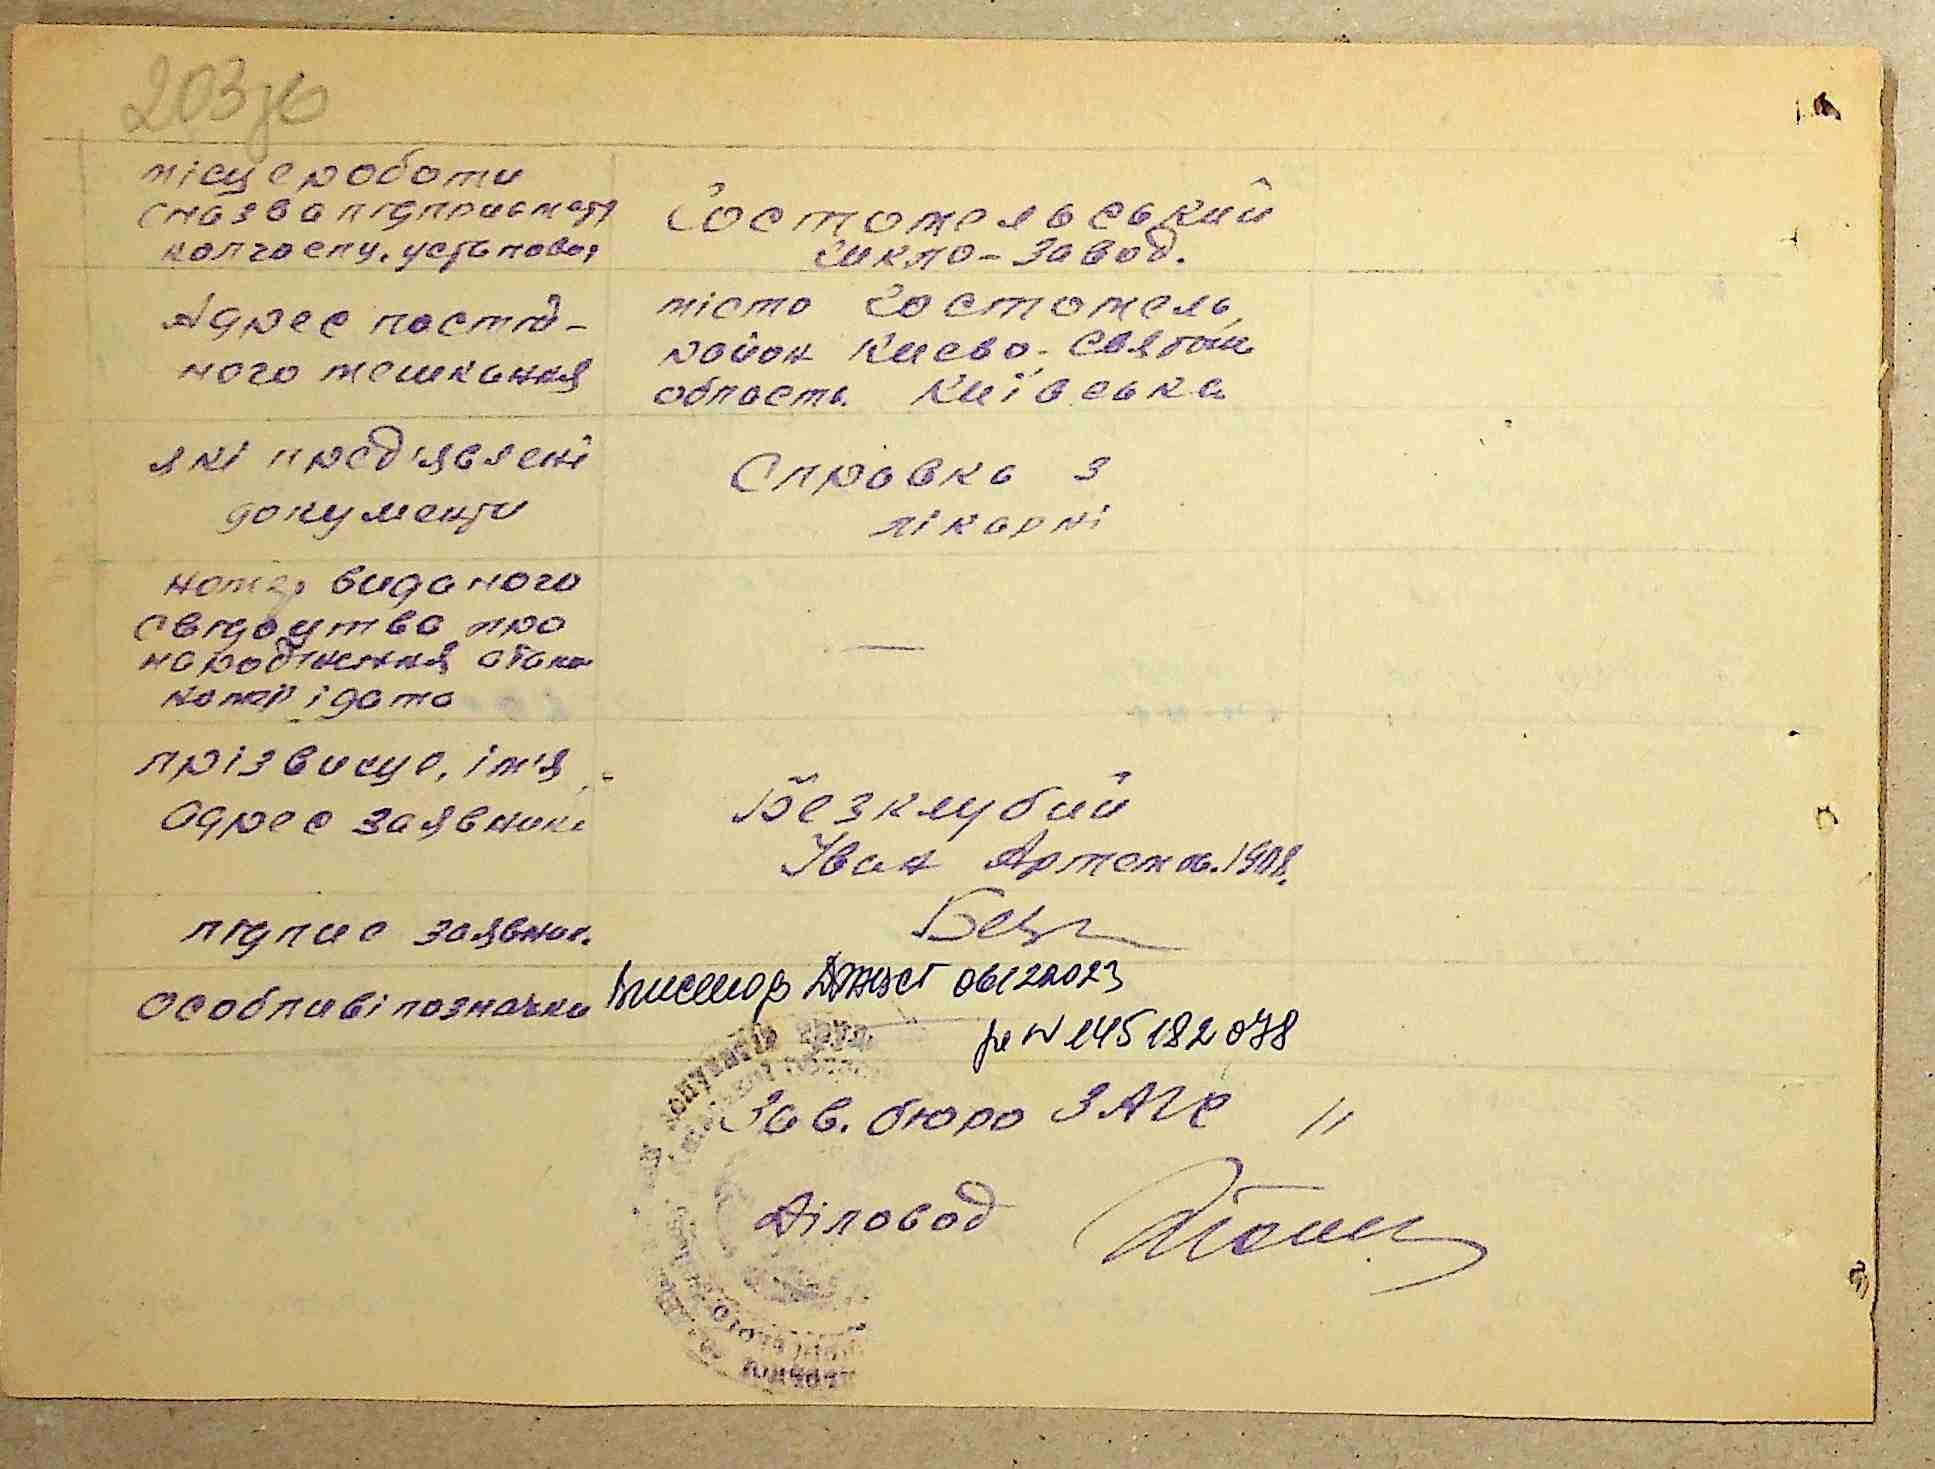 203зв
місце роботи
(назва підприємств
колгоспу, установи)
Гостомельський
скло-завод.
Адрес постій-
ного мешкання
місто Гостомель
район Києво-Святош
область Київська
які пред'явлені
документи
Справка з
лікарні
номер виданого
свідоцтва про
народження
номер і дата
—
прізвище, ім'я,
адрес заявника
Безклубий
Іван Артемов. 1908.
підпис заявник.
Без
особливі позначки
ДРАЦСГ 06122023
145182078
Зав. бюро ЗАГС "
Діловод